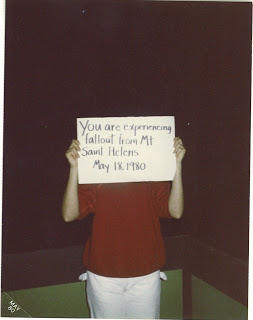 You are experiencing
fallout from Mt
Saint Helens
May 18, 1980
MAY
80